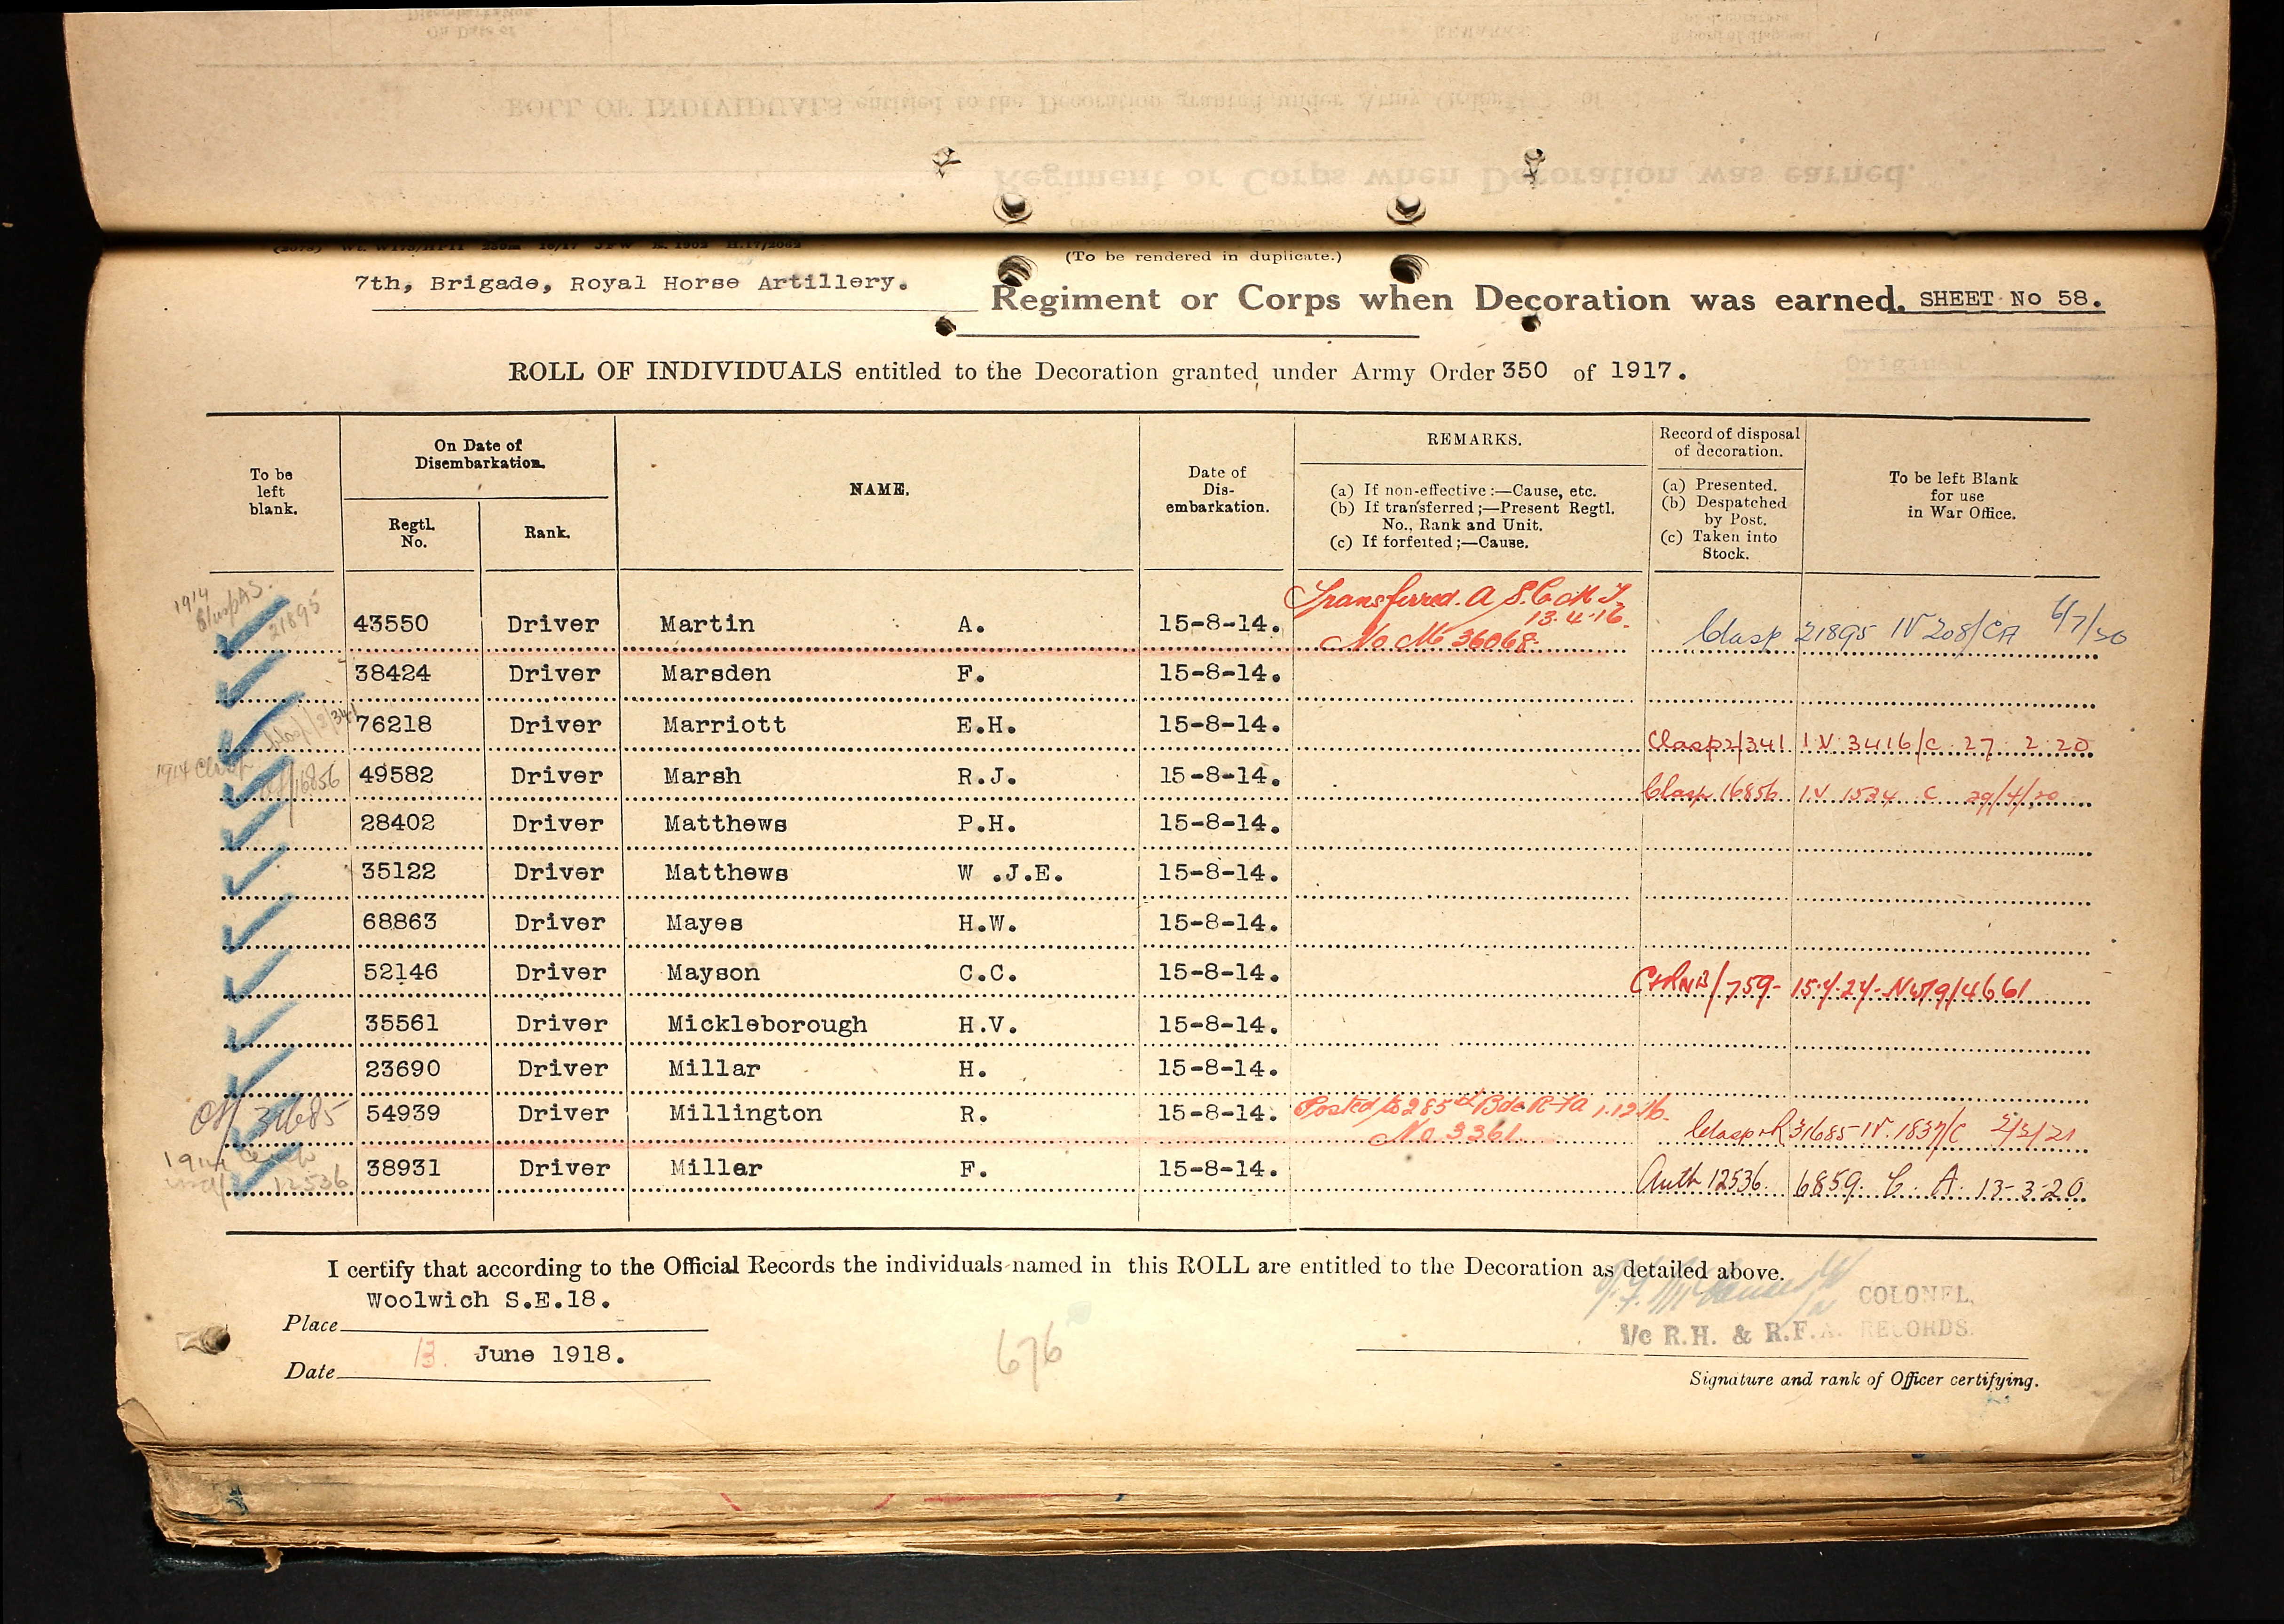 (To be rendered in duplicate.)
7th, Brigade, Royal Horse Artillery. Regiment or Corps when Decoration was earned. SHEET No 58.
ROLL OF INDIVIDUALS entitled to the Decoration granted under Army Order 350 of 1917.
To be left blank.
On Date of Disembarkation.
Regtl. No.
Rank.
NAME.
Date of Dis-embarkation.
REMARKS.
(a) If non-effective :—Cause, etc.
(b) If transferred ;—Present Regtl. No., Rank and Unit.
(c) If forfeited ;—Cause.
Record of disposal of decoration.
(a) Presented.
(b) Despatched by Post.
(c) Taken into Stock.
To be left Blank for use in War Office.
1914 Clasp 21895
43550 Driver Martin A. 15-8-14. Transferred. A.S.C. M.T. 13.4.16. No M 36068. Clasp 21895 IV 208/CA 6/7/20
38424 Driver Marsden F. 15-8-14.
76218 Driver Marriott E.H. 15-8-14. Clasp 2/341 I.V. 3416/C 27 2 20
1914 Clasp 16856
49582 Driver Marsh R.J. 15-8-14. Clasp 16856 I.V 1534 C 29/4/20
28402 Driver Matthews P.H. 15-8-14.
35122 Driver Matthews W .J.E. 15-8-14.
68863 Driver Mayes H.W. 15-8-14.
52146 Driver Mayson C.C. 15-8-14.
35561 Driver Mickleborough H.V. 15-8-14.
23690 Driver Millar H. 15-8-14.
31685 54939 Driver Millington R. 15-8-14. Posted to 285th Bde RFA 1.12.16. No 3361. Clasp & R 31685 IV. 1837/C 2/3/21
1914 12536
38931 Driver Miller F. 15-8-14. Auth 12536. 6859. C. A. 13-3-20.
I certify that according to the Official Records the individuals named in this ROLL are entitled to the Decoration as detailed above.
Woolwich S.E.18.
Place
COLONEL,
i/c R.H. & R.F.A. RECORDS.
13. June 1918.
Date
676
Signature and rank of Officer certifying.